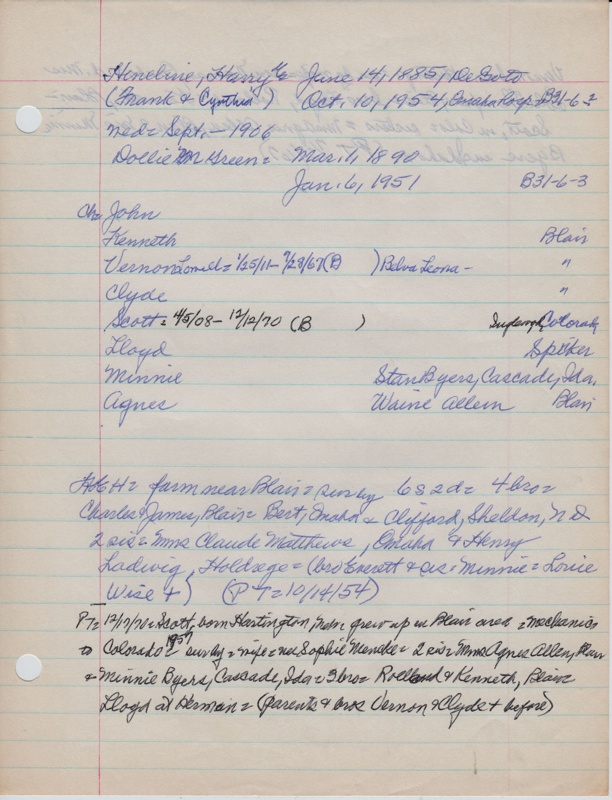 Hineline, Harry G June 14, 1885, DeSoto
(Frank & Cynthia) Oct. 10, 1954, Omaha Hosp = B31-6-2
Wed = Sept. - 1906
Dollie M Green = Mar. 1, 1890
Jan. 6, 1951 B31-6-3
Ch = John
Kenneth Blair
Vernon Lowell = 1/25/11 - 7/28/67 (B ) Belva Leona - "
Clyde "
Scott = 4/5/08 - 12/12/70 (B ) Colorado
Lloyd Spiker
Minnie Stan Byers, Cascade, Ida.
Agnes Waine Allen Blair
HGH = farm near Blair = surv by 6s 2d = 4 bro =
Charles & James, Blair = Bert, Omaha & Clifford, Sheldon, N D
2 sis = Mmes Claude Matthews, Omaha & Henry
Ladwig, Holdrege = (bro Everett & sis = Minnie = Louise
Wise +) (PT = 10/14/54)
PT = 12/17/70 = Scott, born Hartington, Nebr. grew up in Blair area = mechanics
to Colorado = 1957 surv by = wife = nee Sophie Mencke = 2 sis = Mmes Agnes Allen, Blair
& Minnie Byers, Cascade, Ida = 3 bro = Rolland & Kenneth, Blair
Lloyd at Herman = (parents & bros Vernon & Clyde + before)